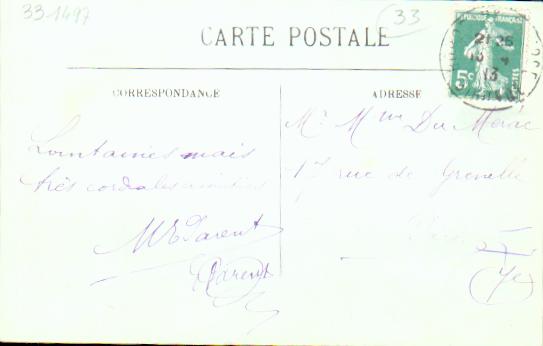 33-1497
33
CARTE POSTALE
REPUBLIQUE FRANÇAISE
5c
POSTES
21 25
4
13
CORRESPONDANCE
ADRESSE
Lointaines mais
très cordiales amitiés
Parent
Parent
Mr Mme Du
rue de Grenelle
Paris